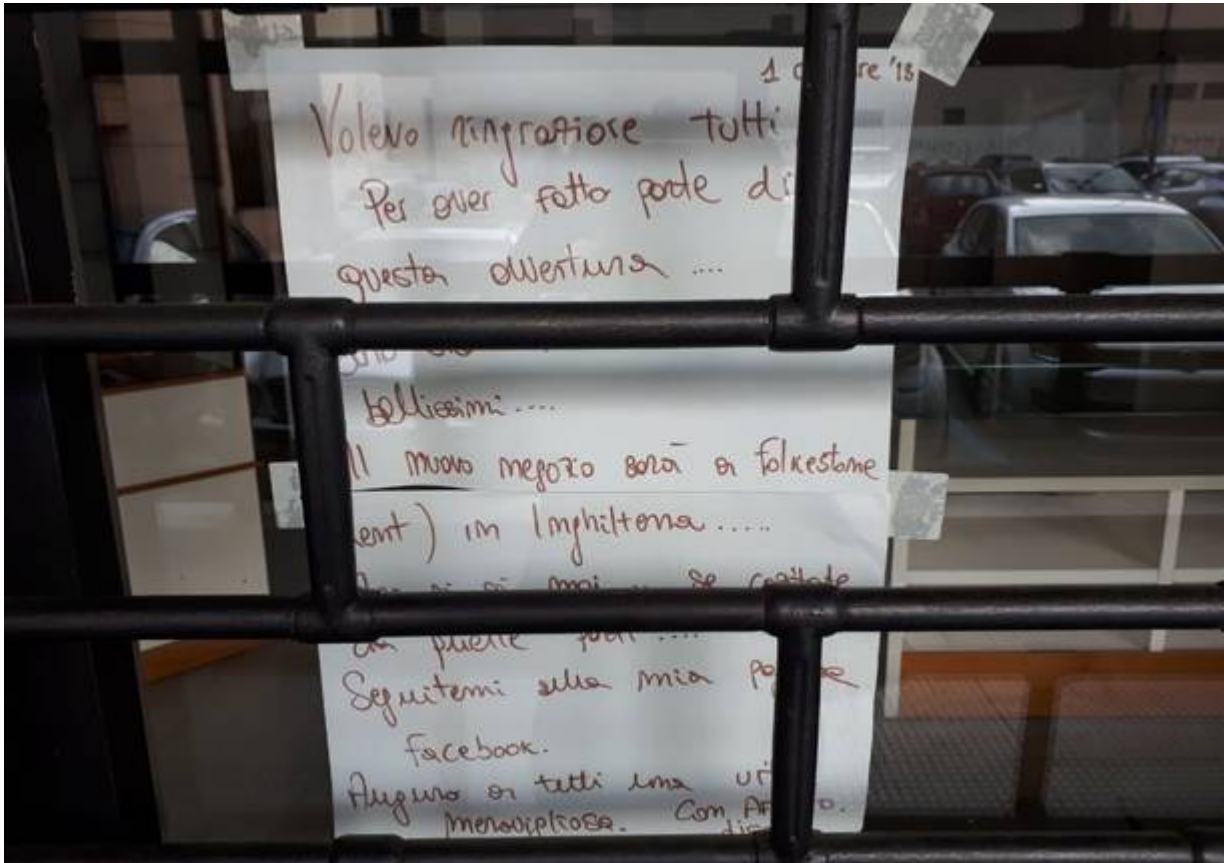 '18
Volevo ringraziare tutti
Per aver fatto parte di
questa avventura ....
bellissimi ....
Il nuovo negozio sarà a folkestone
in Inghilterra .....
mai se capitate
da quelle parti ....
Seguitemi sulla mia
facebook.
Auguro a tutti una
meravigliosa. Con